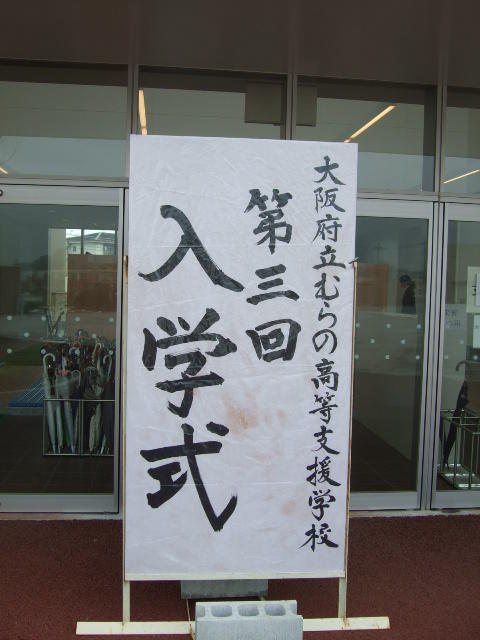 大阪府立むらの高等支援学校
第三回
入学式